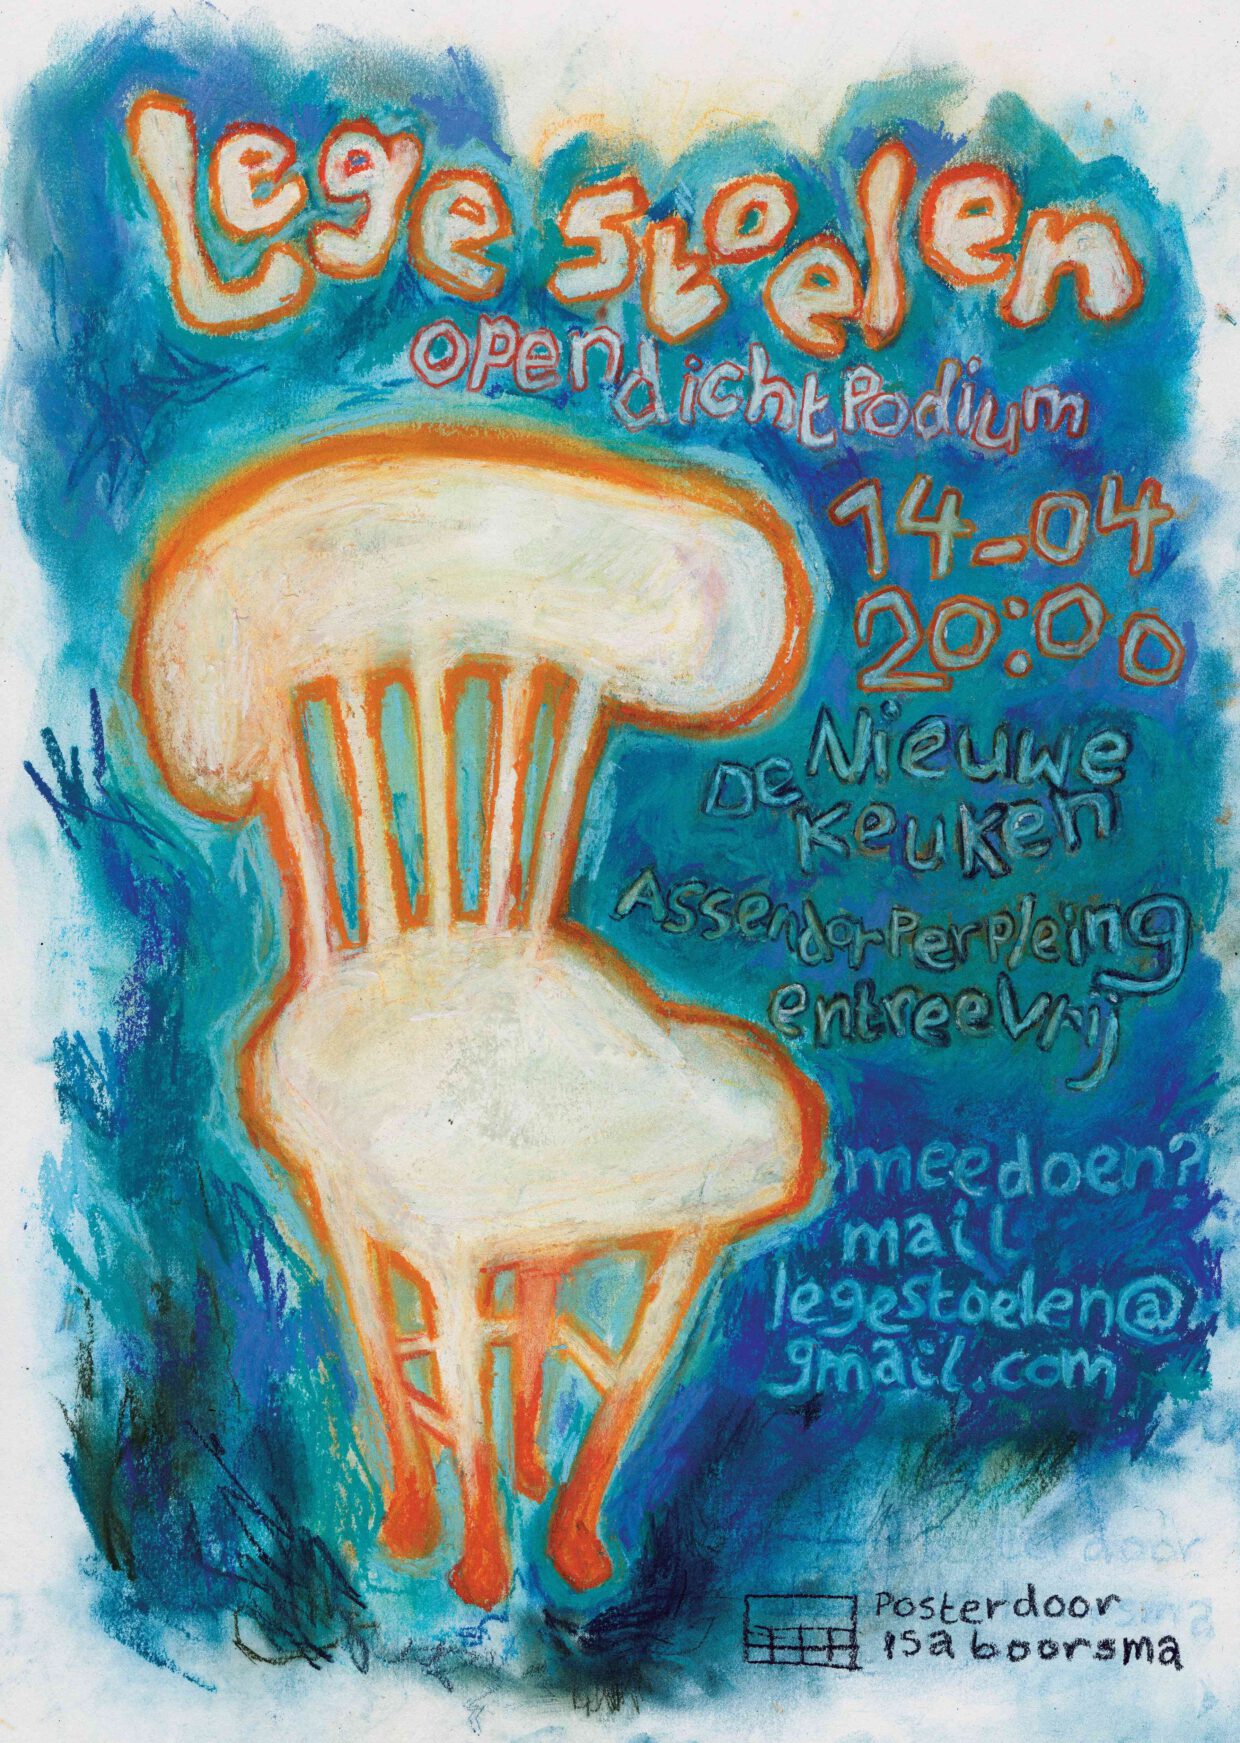 Lege stoelen
open dicht Podium
14-04
20:00
De Nieuwe
Keuken
Assendorperplein 9
entree vrij
meedoen?
mail
legestoelen@
gmail.com
Poster door
isa boorsma